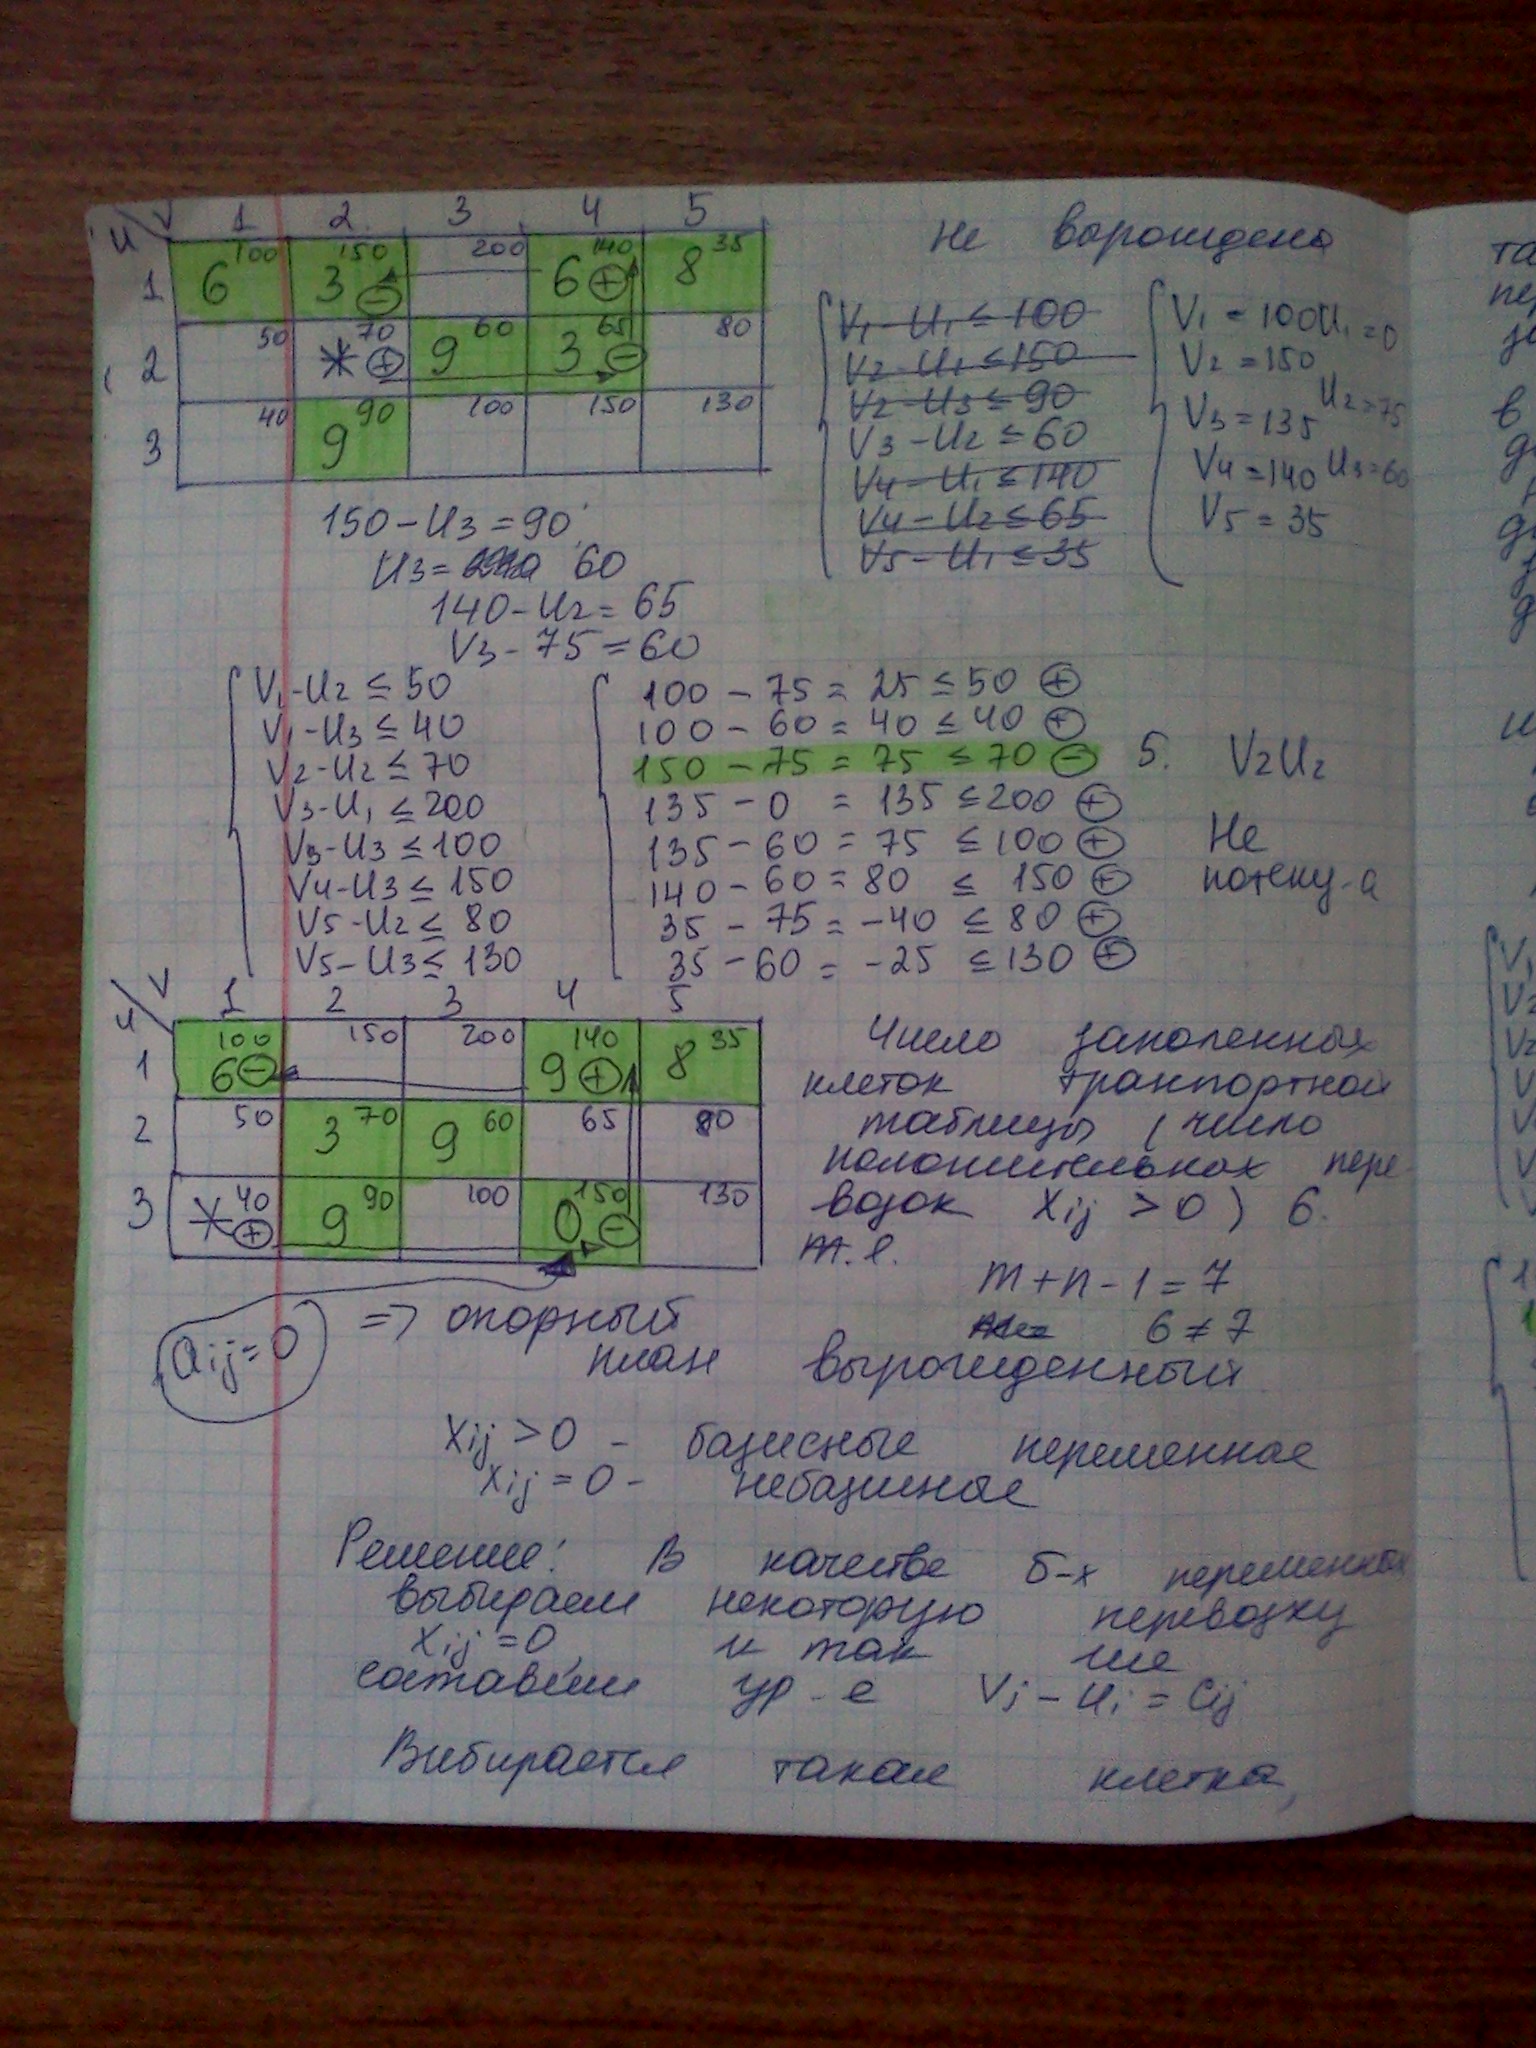 U V 1 2 3 4 5
1 6 100 3 150 ⊖ 200 6 140 ⊕ 8 35
2 50 * 70 ⊕ 9 60 3 65 ⊖ 80
3 40 9 90 100 150 130
Не вырождена
V1 - U1 ≤ 100
V2 - U1 ≤ 150
V2 - U3 ≤ 90
V3 - U2 ≤ 60
V4 - U1 ≤ 140
V4 - U2 ≤ 65
V5 - U1 ≤ 35
V1 = 100 U1 = 0
V2 = 150
V3 = 135 U2 = 75
V4 = 140 U3 = 60
V5 = 35
150 - U3 = 90
U3 = 60
140 - U2 = 65
V3 - 75 = 60
V1 - U2 ≤ 50
V1 - U3 ≤ 40
V2 - U2 ≤ 70
V3 - U1 ≤ 200
V3 - U3 ≤ 100
V4 - U3 ≤ 150
V5 - U2 ≤ 80
V5 - U3 ≤ 130
100 - 75 = 25 ≤ 50 ⊕
100 - 60 = 40 ≤ 40 ⊕
150 - 75 = 75 ≤ 70 ⊖ 5. V2U2
135 - 0 = 135 ≤ 200 ⊕
135 - 60 = 75 ≤ 100 ⊕
140 - 60 = 80 ≤ 150 ⊕
35 - 75 = -40 ≤ 80 ⊕
35 - 60 = -25 ≤ 130 ⊕
Не
потенц-а
U V 1 2 3 4 5
1 100 6 ⊖ 150 200 140 9 ⊕ 8 35
2 50 3 70 9 60 65 80
3 * 40 ⊕ 9 90 100 0 150 ⊖ 130
Число заполенных
клеток транпортной
таблицы (число
положительных пере-
возок Xij > 0) 6.
т.е.
m + n - 1 = 7
6 ≠ 7
aij = 0 => опорный
план вырожденный
Xij > 0 - базисные переменные
Xij = 0 - небазисные
Решение: В качестве б-х переменных
выбираем некоторую перевозку
Xij = 0 и так же
составим ур-е Vj - Ui = Cij
Выбирается такая клетка,